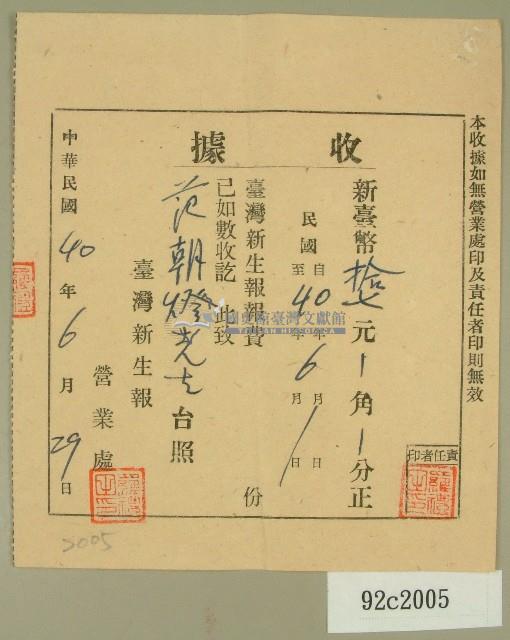 本收據如無營業處印及責任者印則無效
收據
新臺幣拾元 角 分正
民國自40年6月1日
至 年 月 日
臺灣新生報報費 份
已如數收訖 此致
范朝燈先生台照
臺灣新生報
營業處
中華民國40年6月29日
責任者印
國史館臺灣文獻館
TAIWAN HISTORICA
2005
92c2005